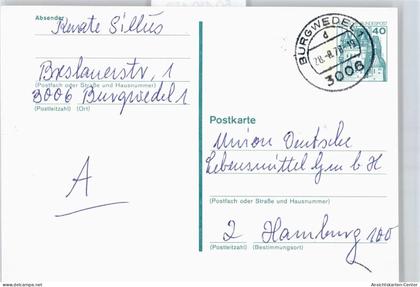 Absender
Renate Sillus
Breslauerstr, 1
(Postfach oder Straße und Hausnummer)
3006 Burgwedel 1
(Postleitzahl) (Ort)
A
BURGWEDEL 1
d
3006
BUNDESPOST
40
Postkarte
Union Deutsche
Lebensmittel GmbH
(Postfach oder Straße und Hausnummer)
2 Hamburg 100
(Postleitzahl) (Bestimmungsort)
Ansichtskarten-Center